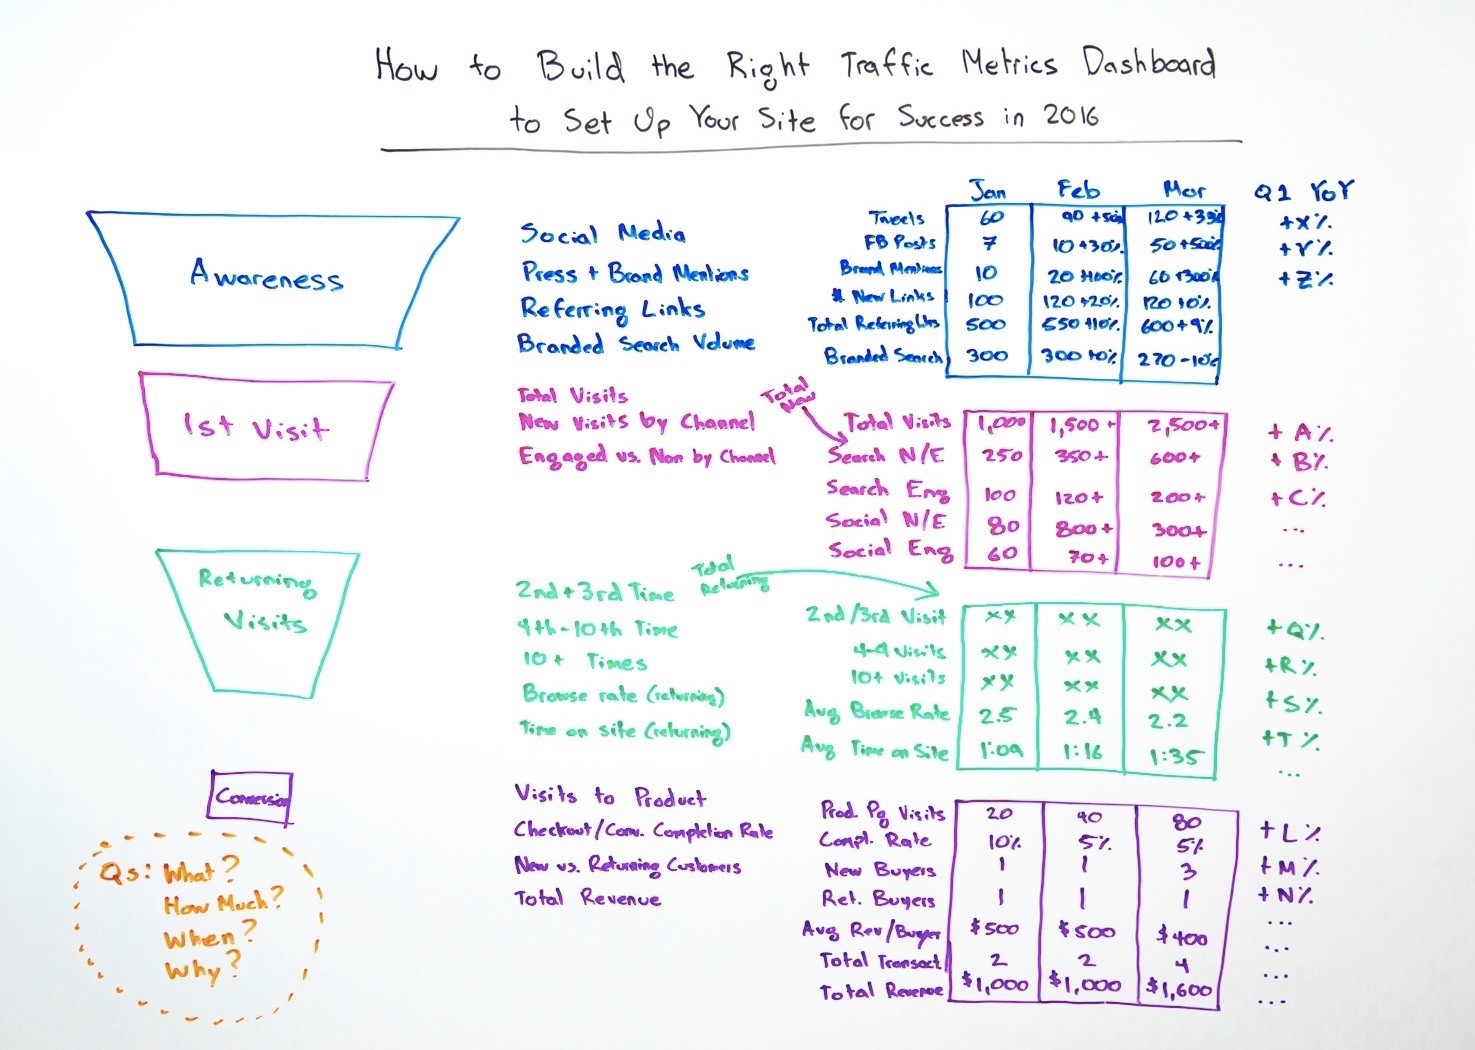 How to Build the Right Traffic Metrics Dashboard
to Set Up Your Site for Success in 2016
Jan Feb Mar Q1 YoY
Awareness
Social Media
Press + Brand Mentions
Referring Links
Branded Search Volume
Tweets 60 90 +50% 120 +33% +X%
FB Posts 7 10 +30% 50 +500% +Y%
Brand Mentions 10 20 +100% 60 +300% +Z%
# New Links 100 120 +20% 120 +0%
Total Referring Links 500 550 +10% 600 +9%
Branded Search 300 300 +0% 270 -10%
1st Visit
Total Visits
New Visits by Channel
Engaged vs. Non by Channel
Total
New
Total Visits 1,000 1,500 + 2,500+ + A%
Search N/E 250 350+ 600+ + B%
Search Eng 100 120+ 200+ +C%
Social N/E 80 800+ 300+ ...
Social Eng 60 70+ 100+ ...
Returning
Visits
2nd + 3rd Time
4th-10th Time
10+ Times
Browse rate (returning)
Time on site (returning)
Total
Returning
2nd/3rd Visit xx xx xx +Q%
4-9 Visits xx xx xx +R%
10+ Visits xx xx xx +S%
Avg Browse Rate 2.5 2.4 2.2 +T%
Avg Time on Site 1:09 1:16 1:35 ...
Conversion
Visits to Product
Checkout/Conv. Completion Rate
New vs. Returning Customers
Total Revenue
Prod. Pg Visits 20 40 80 + L%
Compl. Rate 10% 5% 5% + M%
New Buyers 1 1 3 + N%
Ret. Buyers 1 1 1 ...
Avg Rev/Buyer $500 $500 $400 ...
Total Transact 2 2 4 ...
Total Revenue $1,000 $1,000 $1,600 ...
Qs: What?
How Much?
When?
Why?